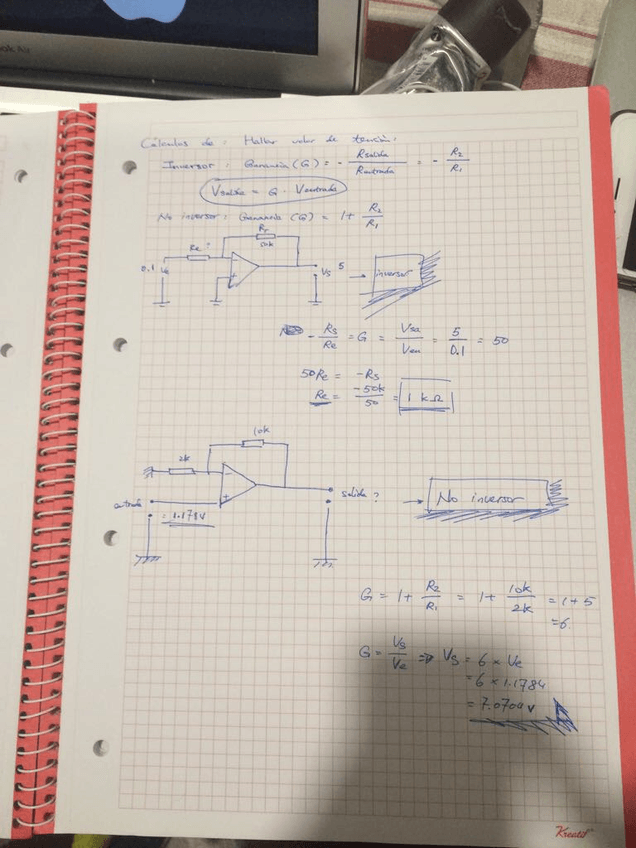 ok Air
Cálculos de: Hallar valor de tención:
Inversor: Ganancia (G) = - Rsalida / Rentrada = - R2 / R1
Vsalida = G · Ventrada
No inversor: Ganancia (G) = 1 + R2 / R1
Re ?
50k
0.1 Ve
-
+
Vs 5 → inversor
- Rs / Re = G = Vsa / Ven = 5 / 0.1 = 50
50Re = -Rs
Re = -50k / 50 = 1 kΩ
2k
10k
-
+
entrada
= 1.1784
salida ? → No inversor
G = 1 + R2 / R1 = 1 + 10k / 2k = 1 + 5
= 6
G = Vs / Ve => Vs = 6 x Ve
= 6 x 1.1784
= 7.0704 v
Kreatif